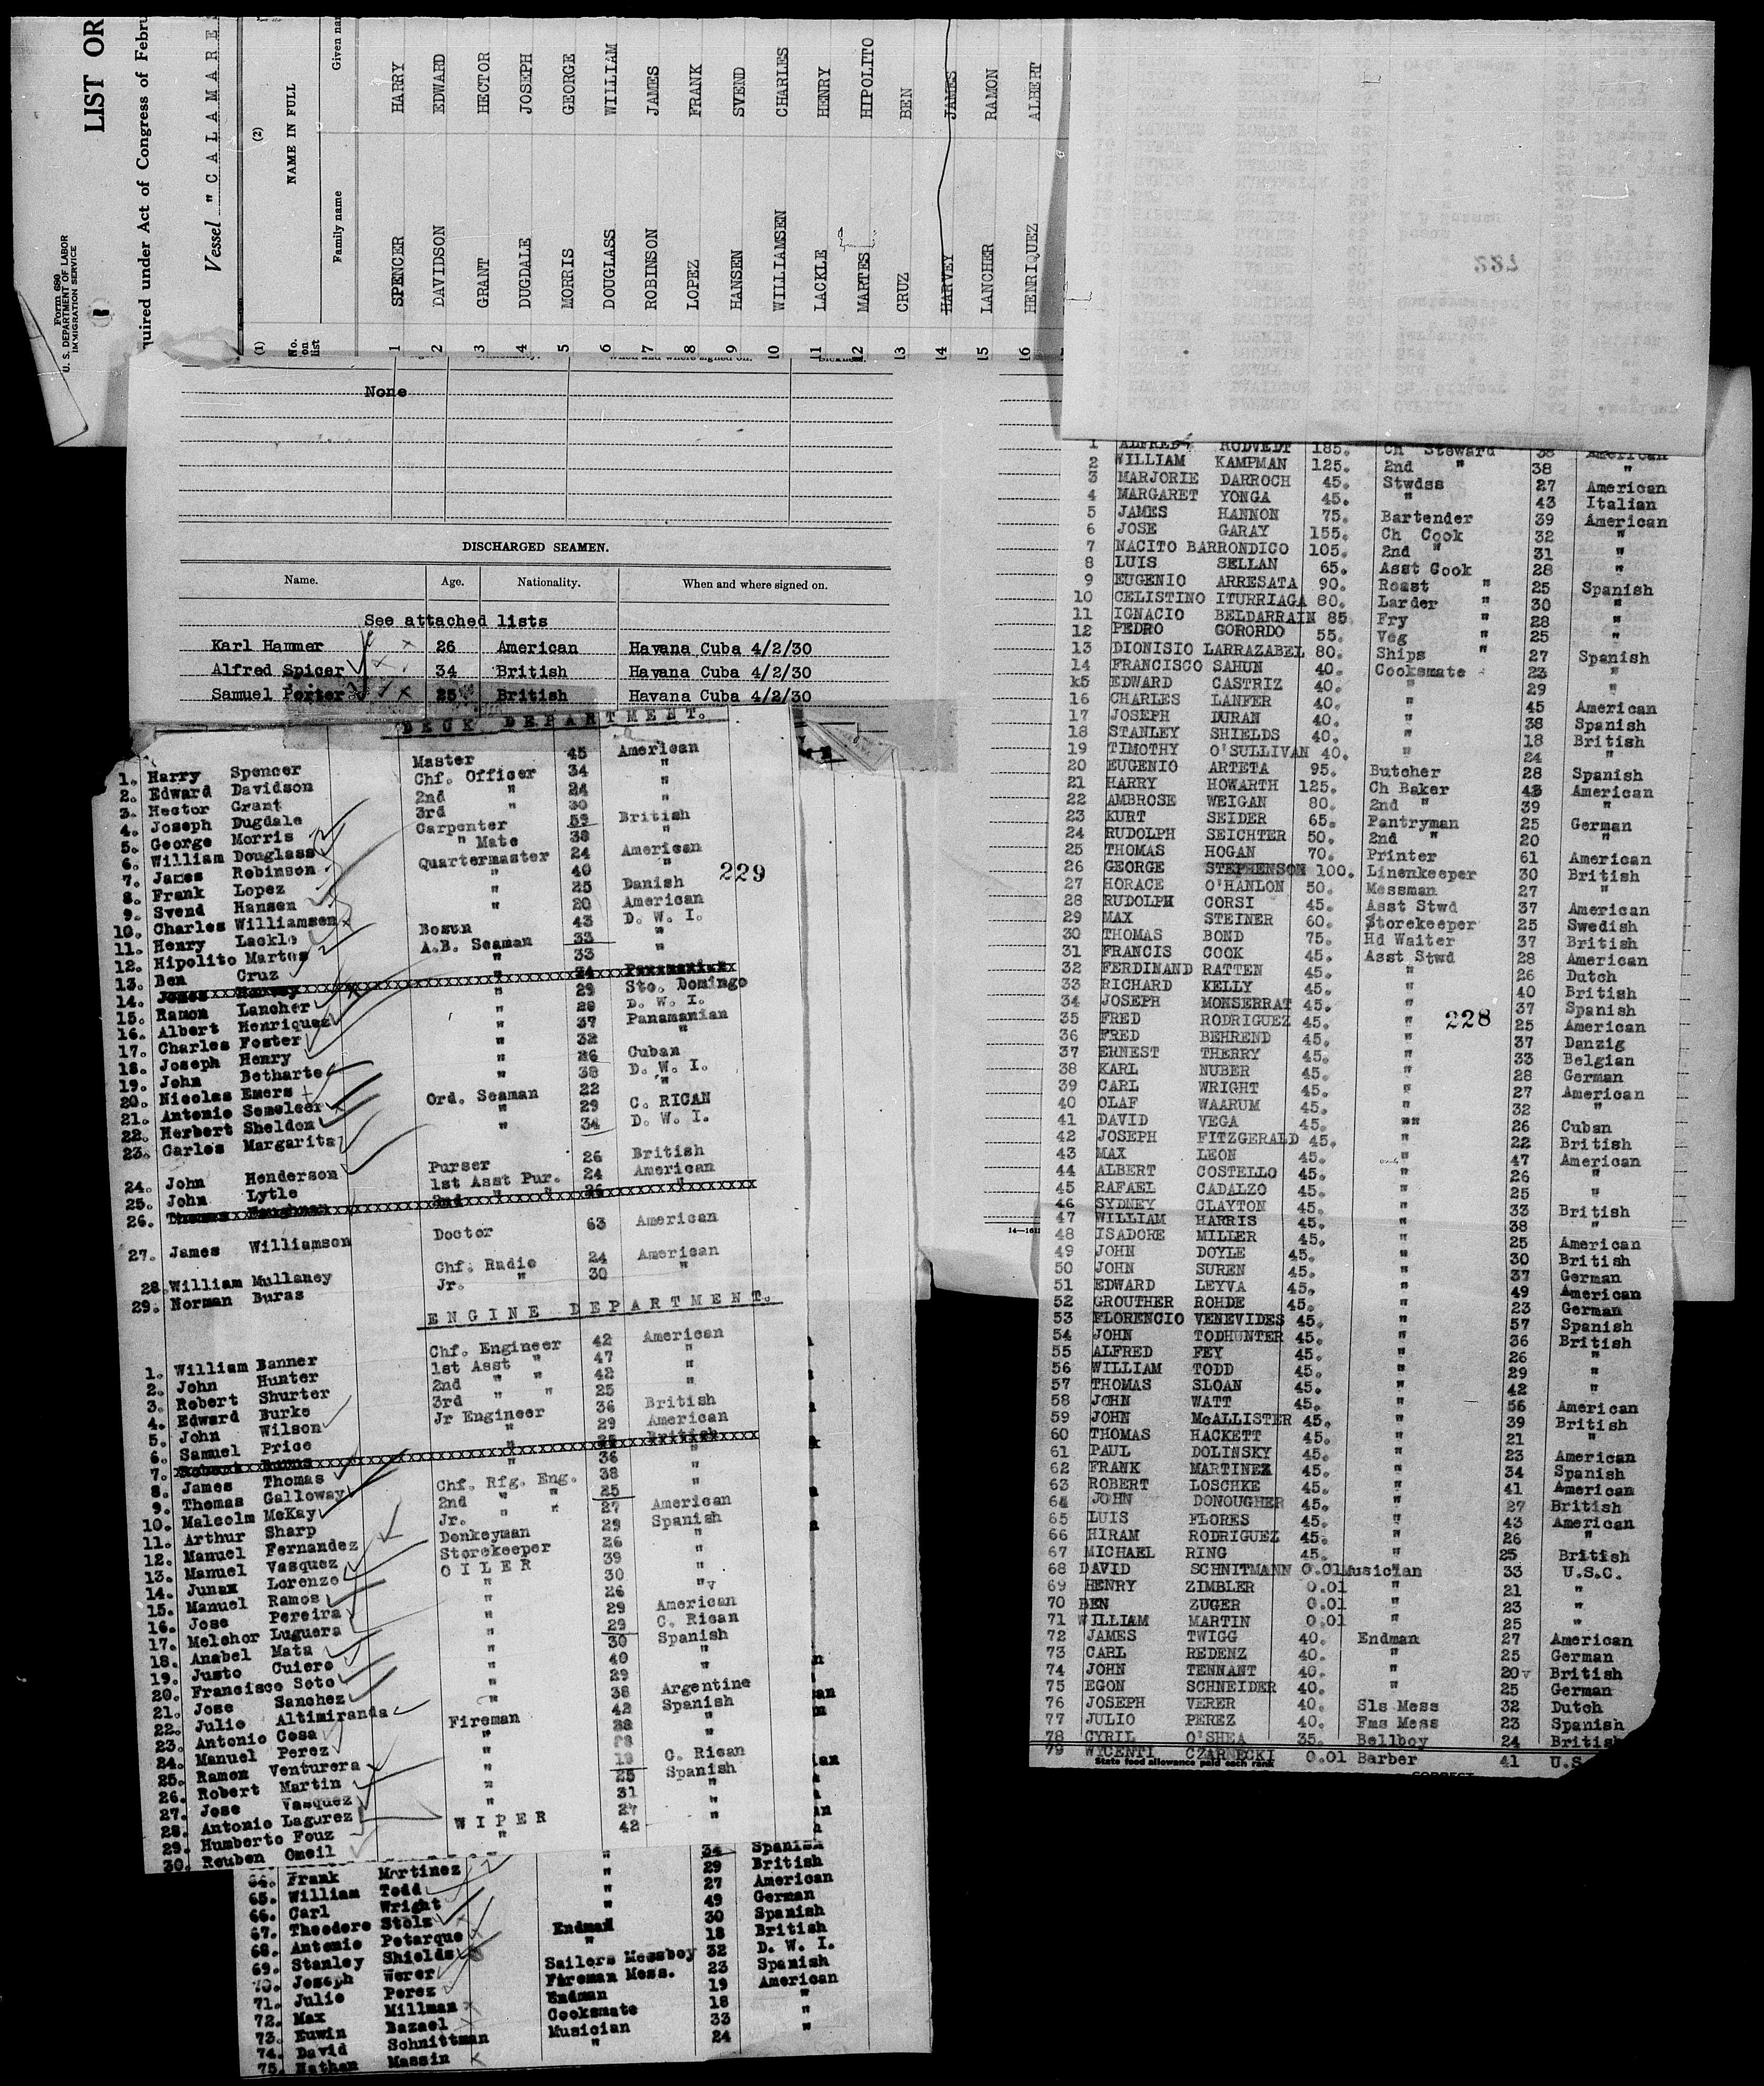 LIST OR
quired under Act of Congress of Febru
Vessel "CALAMARE
Form 680
U. S. DEPARTMENT OF LABOR
IMMIGRATION SERVICE
(1) (2)
No. on list
NAME IN FULL
Family name Given nam
1 SPENCER HARRY
2 DAVIDSON EDWARD
3 GRANT HECTOR
4 DUGDALE JOSEPH
5 MORRIS GEORGE
6 DOUGLASS WILLIAM
7 ROBINSON JAMES
8 LOPEZ FRANK
9 HANSEN SVEND
10 WILLIAMSEN CHARLES
11 LACKLE HENRY
12 MARTES HIPOLITO
13 CRUZ BEN
14 HARVEY JAMES
15 LANCHER RAMON
16 HENRIQUEZ ALBERT
None
DISCHARGED SEAMEN.
Name. Age. Nationality. When and where signed on.
See attached lists
Karl Hammer 26 American Havana Cuba 4/2/30
Alfred Spicer 34 British Havana Cuba 4/2/30
Samuel Porter 25 British Havana Cuba 4/2/30
DECK DEPARTMENT.
1. Harry Spencer Master 45 American
2. Edward Davidson Chf. Officer 34 "
3. Hector Grant 2nd " 24 "
4. Joseph Dugdale 3rd " 30 "
5. George Morris Carpenter 59 British
6. William Douglass " Mate 38 "
7. James Robinson Quartermaster 24 American
8. Frank Lopez " 40 "
9. Svend Hansen " 25 Danish
10. Charles Williamsen " 20 American
11. Henry Lackle Bosun 43 D. W. I.
12. Hipolito Martes A.B. Seaman 33 "
13. Ben Cruz " 33 "
14. James Harvey " 24 Panamanian
15. Ramon Lancher " 29 Sto. Domingo
16. Albert Henriquez " 28 D. W. I.
17. Charles Foster " 37 Panamanian
18. Joseph Henry " 32 "
19. John Betharte " 26 Cuban
20. Nicolas Emers " 38 D. W. I.
21. Antonio Semeleer Ord. Seaman 22 "
22. Herbert Sheldon " 29 C. RICAN
23. Carlos Margarita " 34 D. W. I.
24. John Henderson Purser 26 British
25. John Lytle 1st Asst Pur. 24 American
26. Thomas 2nd " " 26 "
27. James Williamson Doctor 63 American
28. William Mullaney Chf. Radio 24 American
29. Norman Buras Jr. " 30 "
229
ENGINE DEPARTMENT.
1. William Banner Chf. Engineer 42 American
2. John Hunter 1st Asst " 47 "
3. Robert Shurter 2nd " " 42 "
4. Edward Burke 3rd " " 25 "
5. John Wilson Jr Engineer 36 British
6. Samuel Price " 29 American
7. Robert Burns " 25 British
8. James Thomas " 36 "
9. Thomas Galloway Chf. Rfg. Eng. 38 "
10. Malcolm McKay 2nd " " 25 "
11. Arthur Sharp Jr. " " 27 American
12. Manuel Fernandez Donkeyman 29 Spanish
13. Manuel Vasquez Storekeeper 26 "
14. Junax Lorenzo OILER 39 "
15. Manuel Ramos " 30 "
16. Jose Pereira " 26 "
17. Melchor Luguera " 29 American
18. Anabel Mata " 29 C. Rican
19. Justo Cuiero " 30 Spanish
20. Francisco Soto " 40 "
21. Jose Sanchez " 29 "
22. Julio Altimiranda " 38 Argentine
23. Antonio Cosa Fireman 42 Spanish
24. Manuel Perez " 38 "
25. Ramon Venturera " "
26. Robert Martin " 19 C. Rican
27. Jose Vasquez " 25 Spanish
28. Antonio Lagurez " 31 "
29. Humberto Fouz WIPER 27 "
30. Reuben Omeil " 42 "
34 Spanish
64. Frank Martinez " 29 British
65. William Todd " 27 American
66. Carl Wright " 49 German
67. Theodore Stolz " 30 Spanish
68. Antonio Petarque Endman 18 British
69. Stanley Shields " 32 D. W. I.
70. Joseph Werer Sailors Messboy 23 Spanish
71. Julio Perez Fireman Mess. 19 American
72. Max Millman Endman 18 "
73. Euwin Bazael Cooksmate 33 "
74. David Schnittman Musician 24 "
75. Nathan Massin "
1 ALFRED RUDVEDT 185. Ch Steward 38 American
2 WILLIAM KAMPMAN 125. 2nd " 38 "
3 MARJORIE DARROCH 45. Stwdss 27 American
4 MARGARET YONGA 45. " 43 Italian
5 JAMES HANNON 75. Bartender 39 American
6 JOSE GARAY 155. Ch Cook 32 "
7 NACITO BARRONDICO 105. 2nd " 31 "
8 LUIS SELLAN 65. Asst Cook 28 "
9 EUGENIO ARRESATA 90. Roast " 25 Spanish
10 CELISTINO ITURRIAGA 80. Larder " 30 "
11 IGNACIO BELDARRAIN 85. Fry " 28 "
12 PEDRO GORORDO 55. Veg " 25 "
13 DIONISIO LARRAZABEL 80. Ships " 27 Spanish
14 FRANCISCO SAHUN 40. Cooksmate 23 "
k5 EDWARD CASTRIZ 40. " 29 "
16 CHARLES LANFER 40. " 45 American
17 JOSEPH DURAN 40. " 38 Spanish
18 STANLEY SHIELDS 40. " 18 British
19 TIMOTHY O'SULLIVAN 40. " 24 "
20 EUGENIO ARTETA 95. Butcher 28 Spanish
21 HARRY HOWARTH 125. Ch Baker 43 American
22 AMBROSE WEIGAN 80. 2nd " 39 "
23 KURT SEIDER 65. Pantryman 25 German
24 RUDOLPH SEICHTER 50. 2nd " 20 "
25 THOMAS HOGAN 70. Printer 61 American
26 GEORGE STEPHENSON 100. Linenkeeper 30 British
27 HORACE O'HANLON 50. Messman 27 "
28 RUDOLPH CORSI 45. Asst Stwd 37 American
29 MAX STEINER 60. Storekeeper 25 Swedish
30 THOMAS BOND 75. Hd Waiter 37 British
31 FRANCIS COOK 45. Asst Stwd 28 American
32 FERDINAND RATTEN 45. " 26 Dutch
33 RICHARD KELLY 45. " 40 British
34 JOSEPH MONSERRAT 45. " 37 Spanish
35 FRED RODRIGUEZ 45. " 25 American
228
36 FRED BEHREND 45. " 37 Danzig
37 ERNEST THERRY 45. " 33 Belgian
38 KARL NUBER 45. " 28 German
39 CARL WRIGHT 45. " 27 American
40 OLAF WAARUM 45. " 32 "
41 DAVID VEGA 45. "" 26 Cuban
42 JOSEPH FITZGERALD 45. " 22 British
43 MAX LEON 45. " 47 American
44 ALBERT COSTELLO 45. " 26 "
45 RAFAEL CADALZO 45. " 25 "
46 SYDNEY CLAYTON 45. " 33 British
47 WILLIAM HARRIS 45. " 38 "
48 ISADORE MILLER 45. " 25 American
49 JOHN DOYLE 45. " 30 British
50 JOHN SUREN 45. " 37 German
51 EDWARD LEYVA 45. " 49 American
52 GROUTHER ROHDE 45. " 23 German
53 FLORENCIO VENEVIDES 45. " 57 Spanish
54 JOHN TODHUNTER 45. " 36 British
55 ALFRED FEY 45. " 26 "
56 WILLIAM TODD 45. " 29 "
57 THOMAS SLOAN 45. " 42 "
58 JOHN WATT 45. " 56 American
59 JOHN McALLISTER 45. " 39 British
60 THOMAS HACKETT 45. " 21 "
61 PAUL DOLINSKY 45. " 23 American
62 FRANK MARTINEZ 45. " 34 Spanish
63 ROBERT LOSCHKE 45. " 41 American
64 JOHN DONOUGHER 45. " 27 British
65 LUIS FLORES 45. " 43 American
66 HIRAM RODRIGUEZ 45. " 26 "
67 MICHAEL RING 45. " 25 British
68 DAVID SCHNITMANN 0.01 Musician 33 U.S.C.
69 HENRY ZIMBLER 0.01 " 21 "
70 BEN ZUGER 0.01 " 23 "
71 WILLIAM MARTIN 0.01 " 25 "
72 JAMES TWIGG 40. Endman 27 American
73 CARL REDENZ 40. " 25 German
74 JOHN TENNANT 40. " 20 British
75 EGON SCHNEIDER 40. " 25 German
76 JOSEPH VERER 40. Sls Mess 32 Dutch
77 JULIO PEREZ 40. Fms Mess 23 Spanish
78 CYRIL O'SHEA 35. Bellboy 24 British
79 WYCENTI CZARNECKI 0.01 Barber 41 U.S
State food allowance paid each rank
14—1611